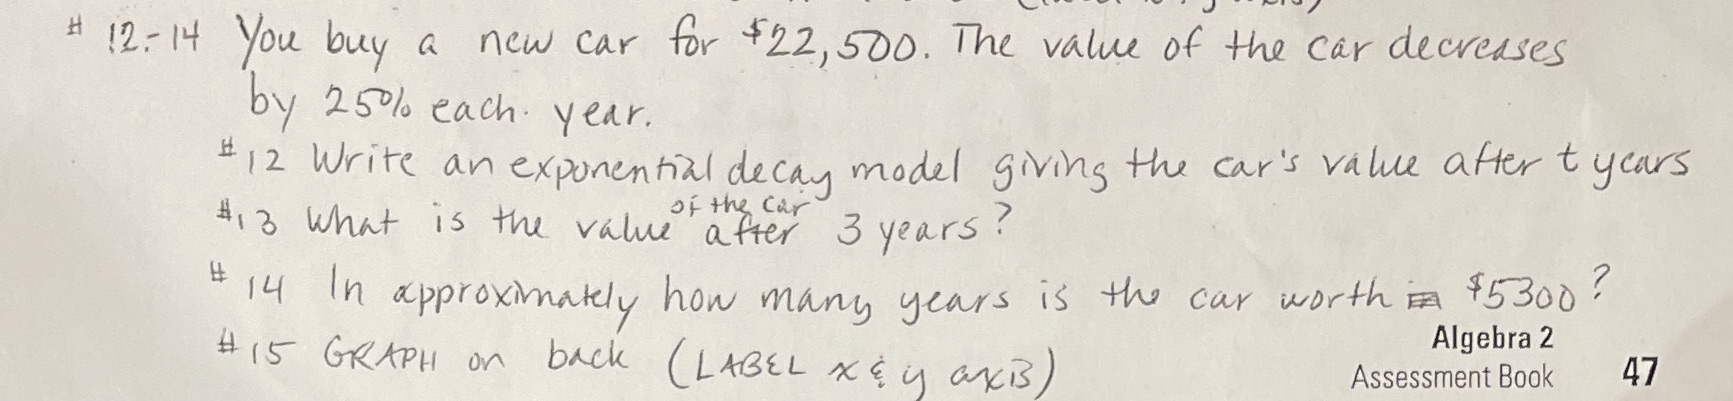 # 12.-14 You buy a new car for $22,500. The value of the car decreases
by 25% each year.
#12 Write an exponential decay model giving the car's value after t years
#13 What is the value of the car after 3 years?
#14 In approximately how many years is the car worth $5300?
#15 GRAPH on back (LABEL x & y axis)
Algebra 2
Assessment Book 47